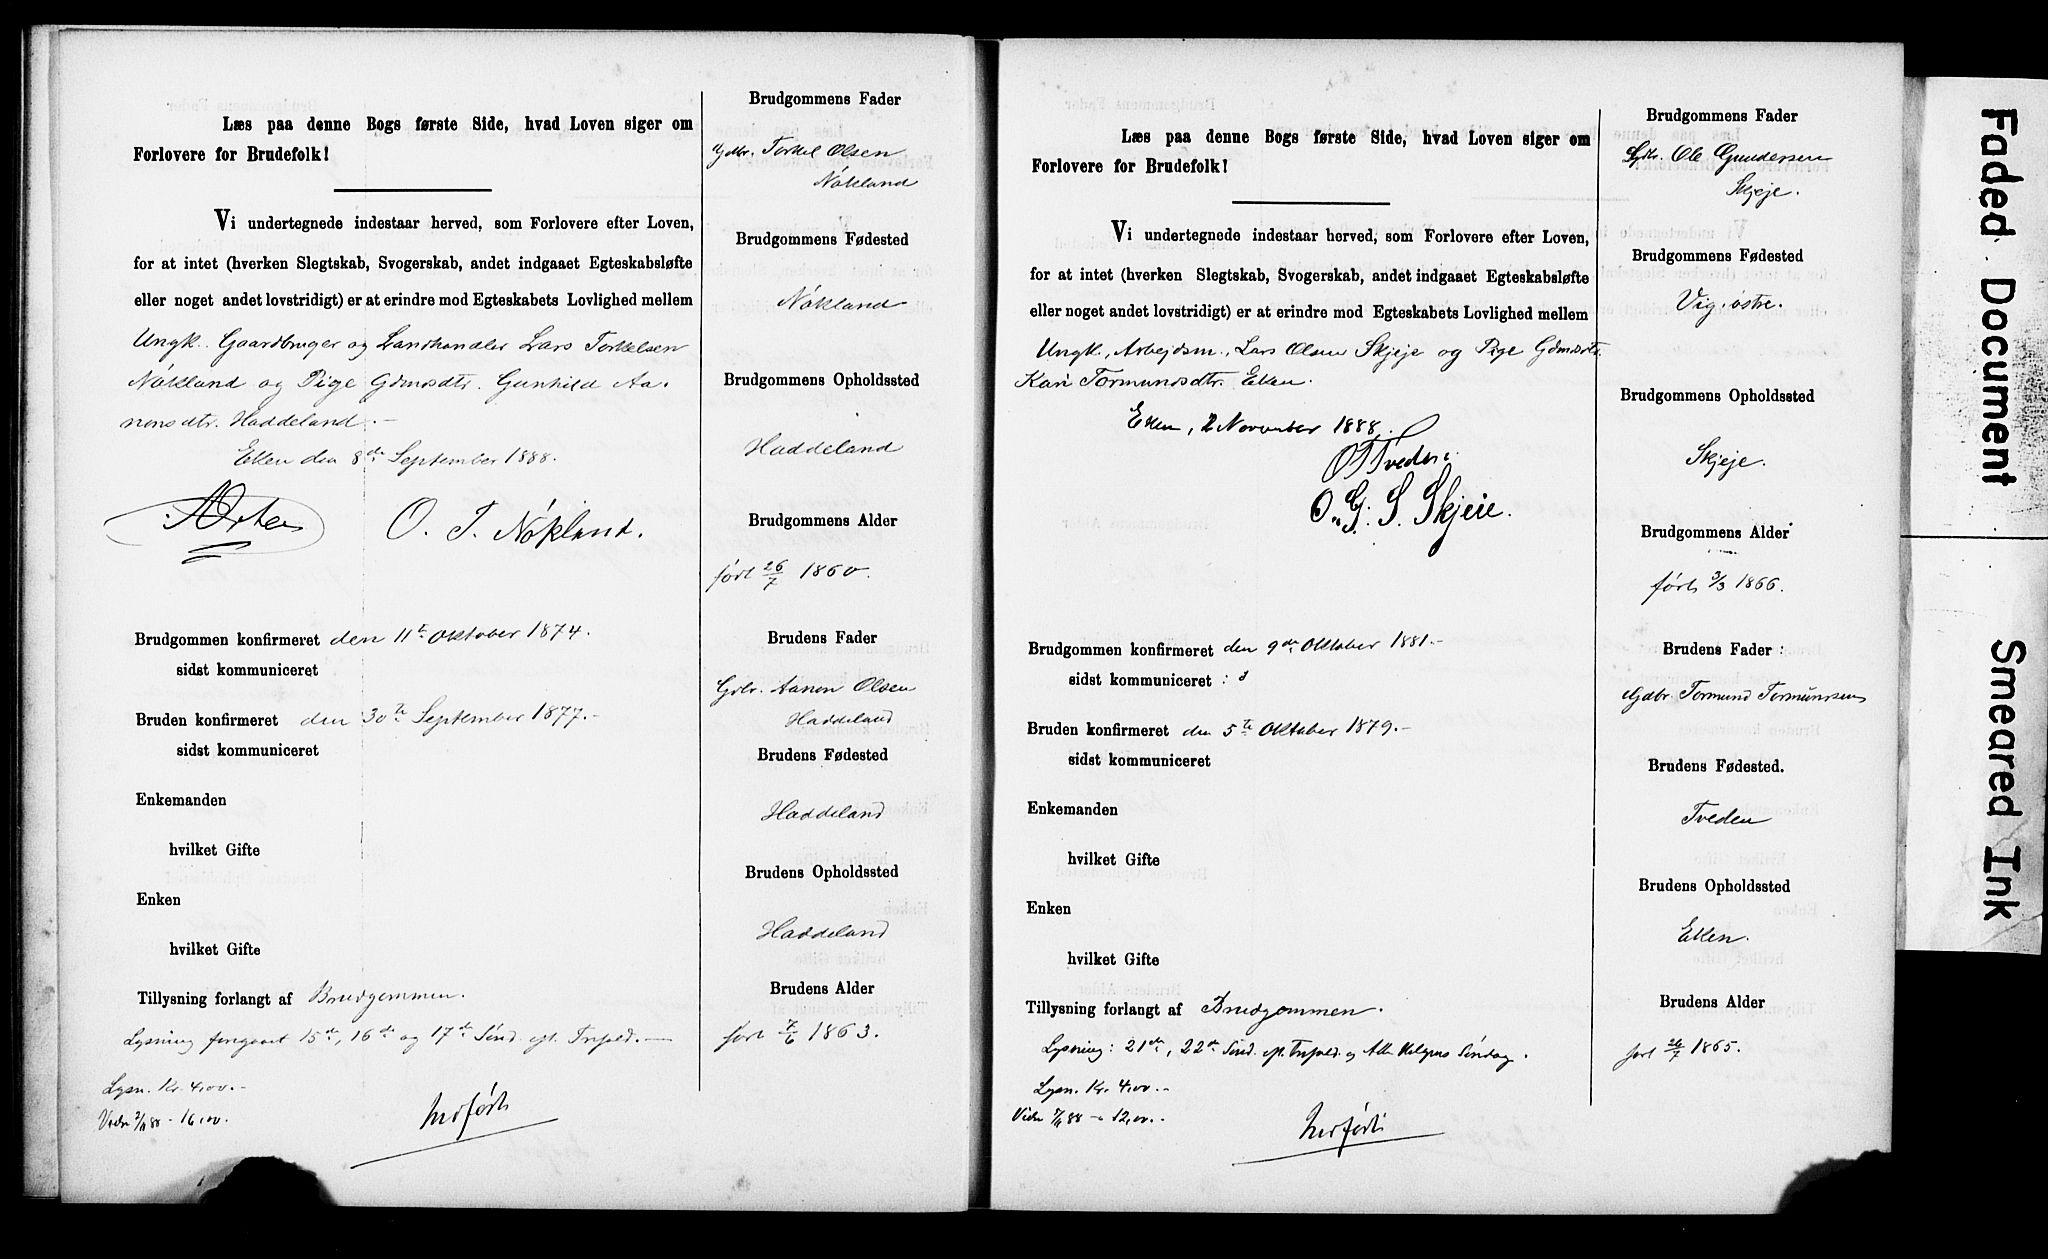 Læs paa denne Bogs første Side, hvad Loven siger om
Forlovere for Brudefolk!
Vi undertegnede indestaar herved, som Forlovere efter Loven,
for at intet (hverken Slegtskab, Svogerskab, andet indgaaet Egteskabsløfte
eller noget andet lovstridigt) er at erindre mod Egteskabets Lovlighed mellem
Ungk. Gaardbruger og Landhandler Lars Torkelsen
Nökland og Pige Gdmsdtr. Gunhild Aa-
nensdtr. Haddeland.-
Eken den 8de September 1888.
O. T. Nökland.
Brudgommen konfirmeret den 11te Oktober 1874.
sidst kommuniceret
Bruden konfirmeret den 30te September 1877.-
sidst kommuniceret
Enkemanden
hvilket Gifte
Enken
hvilket Gifte
Tillysning forlangt af Brudgommen.
Lysning foregaaet 15de, 16de og 17de Sönd. eft. Trefold.-
Lysn. Kr. 4,00.-
Viede 2/11 88 - 16,00.
Indført
Brudgommens Fader
Gdbr. Torkel Olsen
Nökland
Brudgommens Fødested
Nökland
Brudgommens Opholdssted
Haddeland
Brudgommens Alder
født 26/7 1860.
Brudens Fader
Gdbr. Aanen Olsen
Haddeland
Brudens Fødested
Haddeland
Brudens Opholdssted
Haddeland
Brudens Alder
født 7/6 1863.
Læs paa denne Bogs første Side, hvad Loven siger om
Forlovere for Brudefolk!
Vi undertegnede indestaar herved, som Forlovere efter Loven,
for at intet (hverken Slegtskab, Svogerskab, andet indgaaet Egteskabsløfte
eller noget andet lovstridigt) er at erindre mod Egteskabets Lovlighed mellem
Ungk., Arbejdsm., Lars Olsen Skjeje og Pige Gdmsdtr.
Kari Tormundsdtr. Eken.
Eken, 2 November 1888.
O T Tveden
O. G. S. Skjeie.
Brudgommen konfirmeret den 9de Oktober 1881.-
sidst kommuniceret :
Bruden konfirmeret den 5te Oktober 1879.-
sidst kommuniceret
Enkemanden
hvilket Gifte
Enken
hvilket Gifte
Tillysning forlangt af Brudgommen.
Lysning: 21de, 22de Sönd. eft. Trefold. og Alle Helgens Söndag.
Lysn. Kr. 4,00.-
Viede 7/11 88 - 12,00.-
Indført
Brudgommens Fader
Gdbr. Ole Gundersen
Skjeje.
Brudgommens Fødested
Vig, östre.
Brudgommens Opholdssted
Skjeje.
Brudgommens Alder
født 3/3 1866.
Brudens Fader :
Gdbr. Tormund Tormundsen
Brudens Fødested.
Tveden
Brudens Opholdssted
Eken.
Brudens Alder
født 26/7 1865.
Faded Document
Smeared Ink